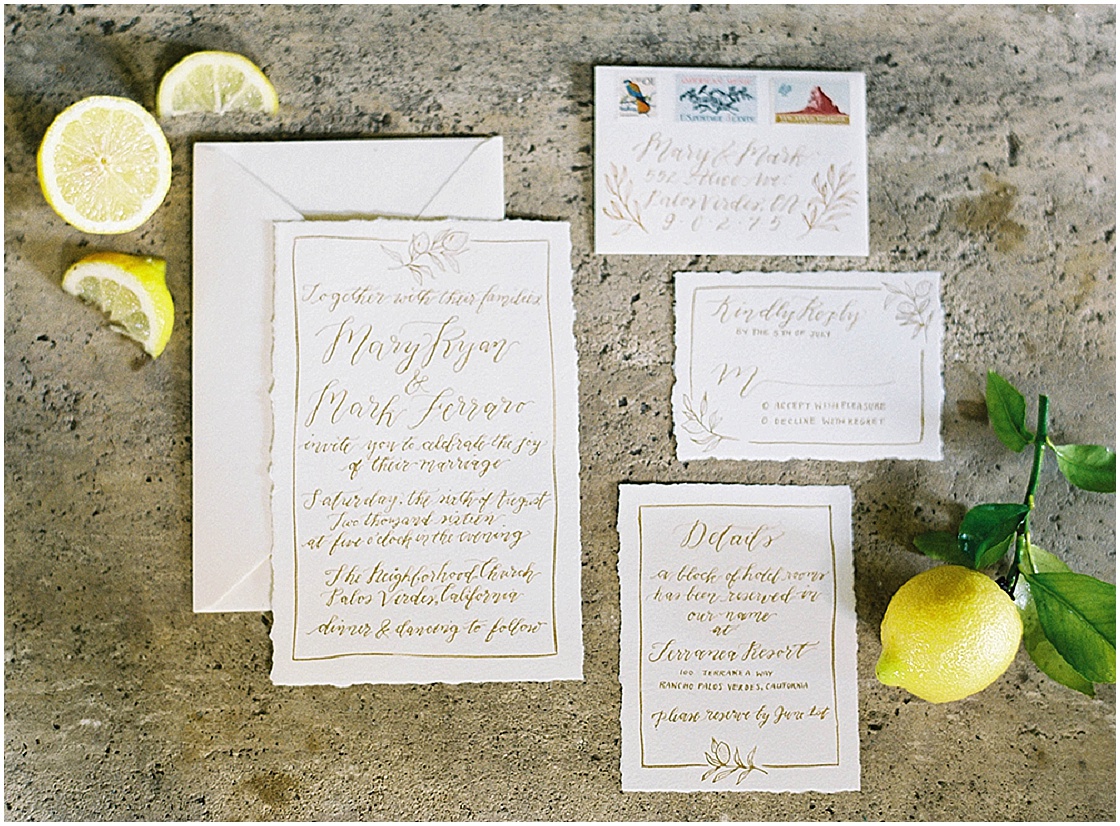 Together with their families
Mary Ryan
&
Mark Ferraro
invite you to celebrate the joy
of their marriage
Saturday, the sixth of August
Two thousand sixteen
at five o'clock in the evening
The Neighborhood Church
Palos Verdes, California
dinner & dancing to follow
U.S. POSTAGE
Mary & Mark
Ave.
Palos Verdes, CA
9·0·2·7·5
Kindly Reply
BY THE 5TH OF JULY
M
O ACCEPT WITH PLEASURE
O DECLINE WITH REGRET
Details
a block of hotel rooms
has been reserved in
our name
at
Terranea Resort
100 TERRANEA WAY
RANCHO PALOS VERDES, CALIFORNIA
please reserve by June 1st